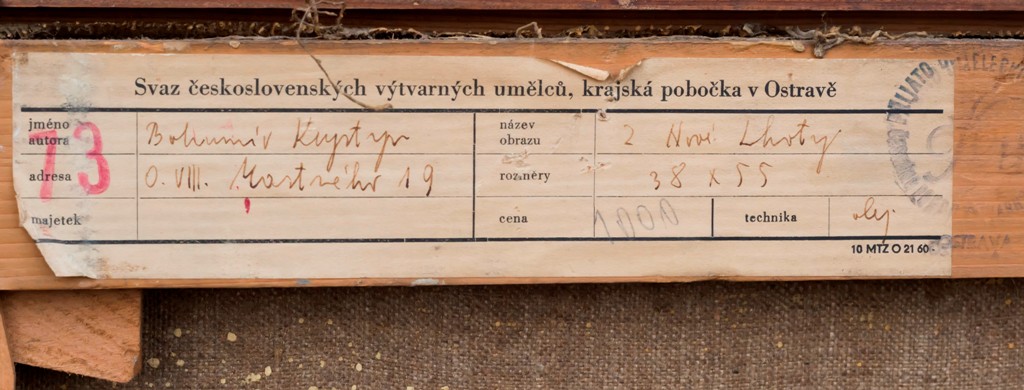 Svaz československých výtvarných umělců, krajská pobočka v Ostravě
jméno autora Bohumír
název obrazu Z Nové Lhoty
73
adresa O. VIII. 19
rozměry 38 x 55
majetek
cena 1000
technika olej
10 MTŽ O 21 60
OSTRAVA